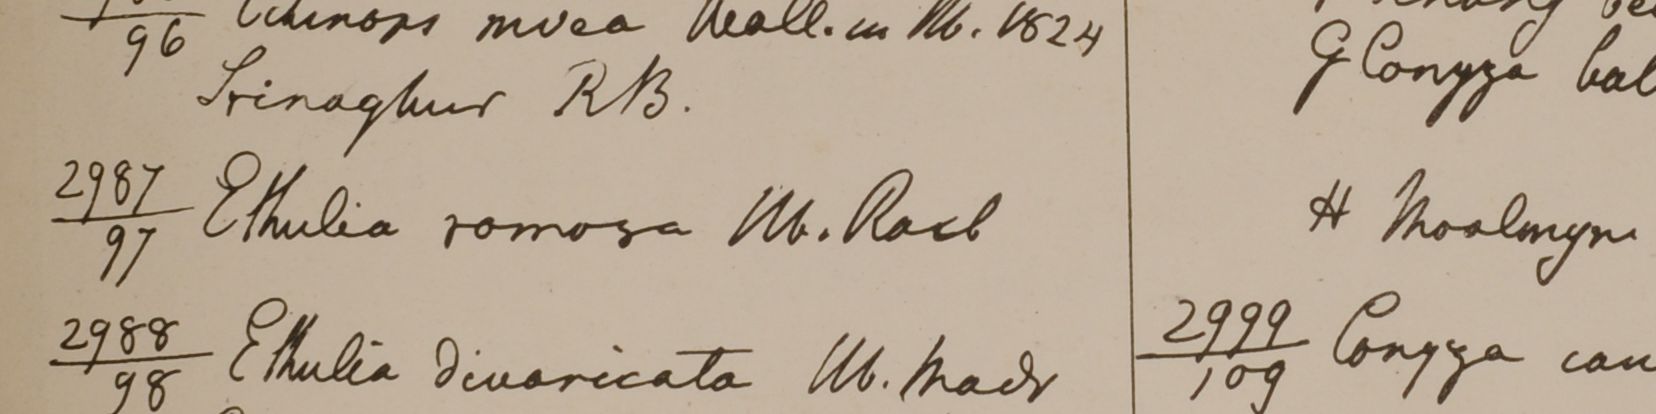 96 Echinops nivea Wall. in Hb. 1824
Srinaghur RB.
2987
97 Ethulia ramosa Hb. Roxb
2988
98 Ethulia divaricata Hb. Madr
G Conyza bal
H Moalmyn
2999
109 Conyza can